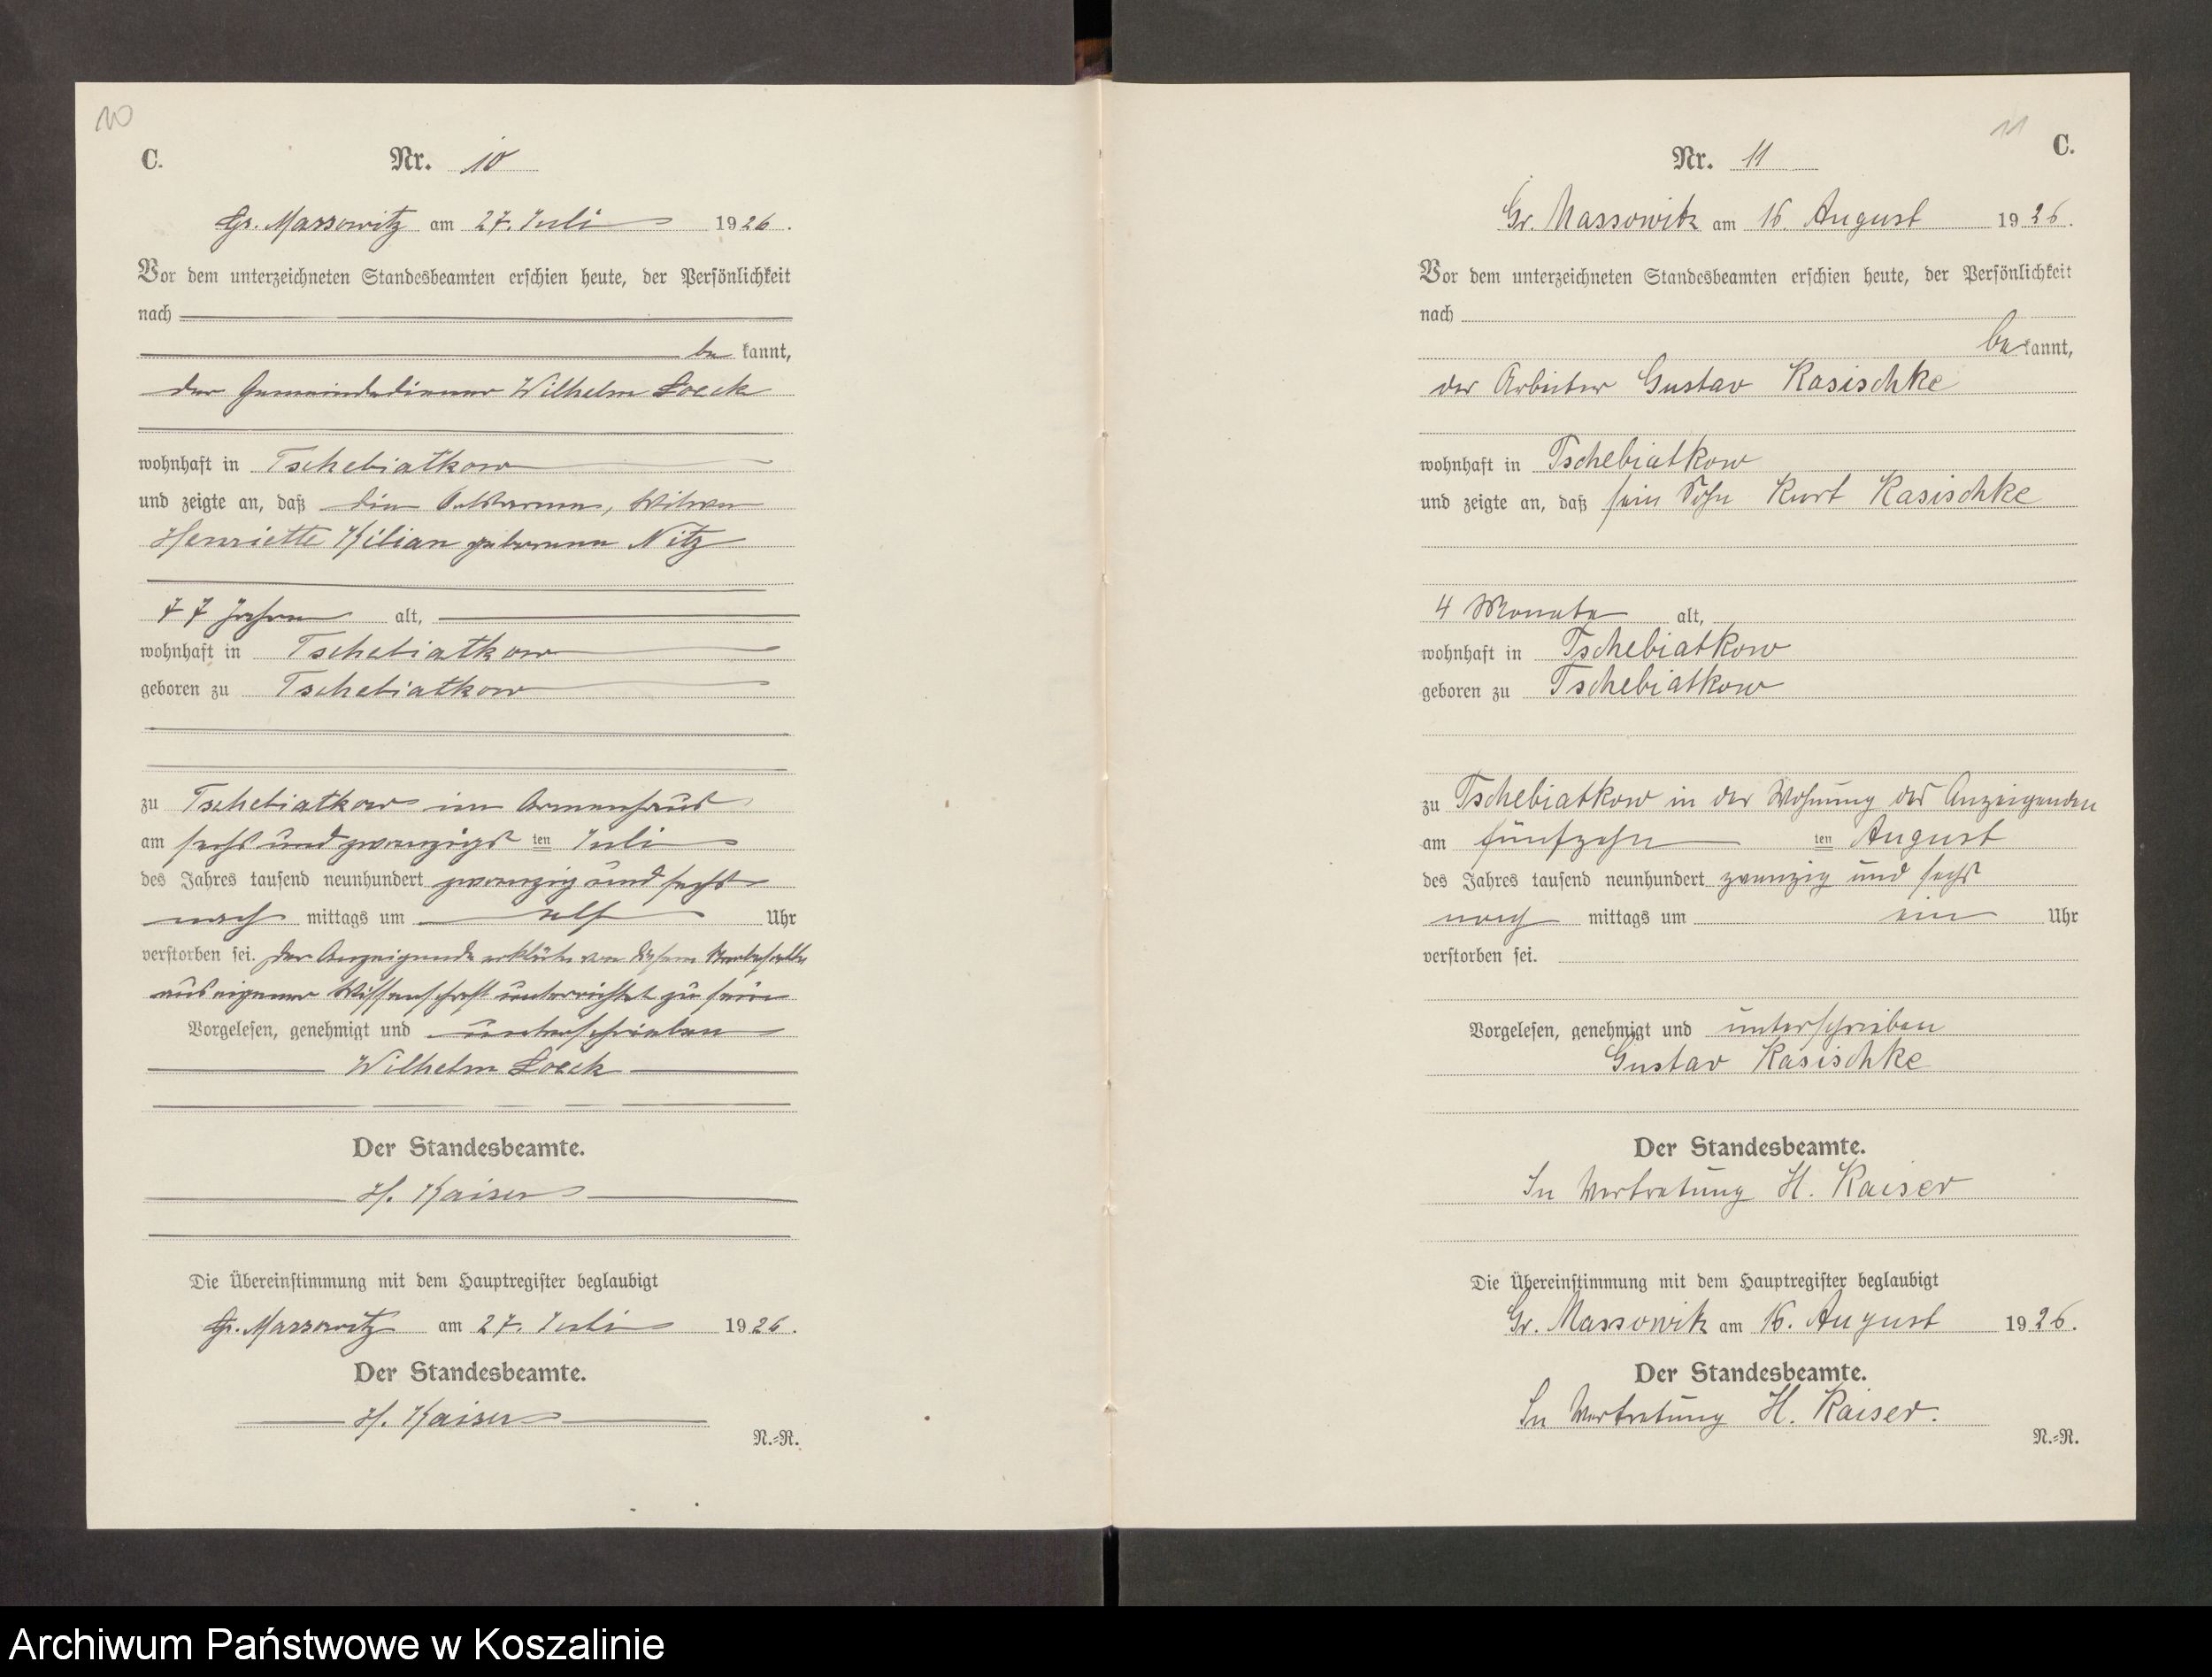 10
C.
Nr. 10
Gr. Massowitz am 27. Juli 1926.
Vor dem unterzeichneten Standesbeamten erschien heute, der Persönlichkeit
nach
be kannt,
der Gemeindediener Wilhelm Loeck
wohnhaft in Tschebiatkow
und zeigte an, daß die Ortsarme, Witwe
Henriette Kilian geborene Nitz
77 Jahre alt,
wohnhaft in Tschebiatkow
geboren zu Tschebiatkow
zu Tschebiatkow im Armenhaus
am sechs und zwanzigs ten Juli
des Jahres tausend neunhundert zwanzig und sechs
nach mittags um elf Uhr
verstorben sei. Der Anzeigende erklärte von diesem Sterbefalle
aus eigener Wissenschaft unterrichtet zu sein
Vorgelesen, genehmigt und unterschrieben
Wilhelm Loeck
Der Standesbeamte.
H. Kaiser
Die Übereinstimmung mit dem Hauptregister beglaubigt
Gr. Massowitz am 27. Juli 1926.
Der Standesbeamte.
H. Kaiser
N.=R.
11
C.
Nr. 11
Gr. Massowitz am 16. August 1926.
Vor dem unterzeichneten Standesbeamten erschien heute, der Persönlichkeit
nach
be kannt,
der Arbeiter Gustav Kasischke
wohnhaft in Tschebiatkow
und zeigte an, daß sein Sohn Kurt Kasischke
4 Monate alt,
wohnhaft in Tschebiatkow
geboren zu Tschebiatkow
zu Tschebiatkow in der Wohnung des Anzeigenden
am fünfzehn ten August
des Jahres tausend neunhundert zwanzig und sechs
nach mittags um ein Uhr
verstorben sei.
Vorgelesen, genehmigt und unterschrieben
Gustav Kasischke
Der Standesbeamte.
In Vertretung H. Kaiser
Die Übereinstimmung mit dem Hauptregister beglaubigt
Gr. Massowitz am 16. August 1926.
Der Standesbeamte.
In Vertretung H. Kaiser.
N.=R.
Archiwum Państwowe w Koszalinie